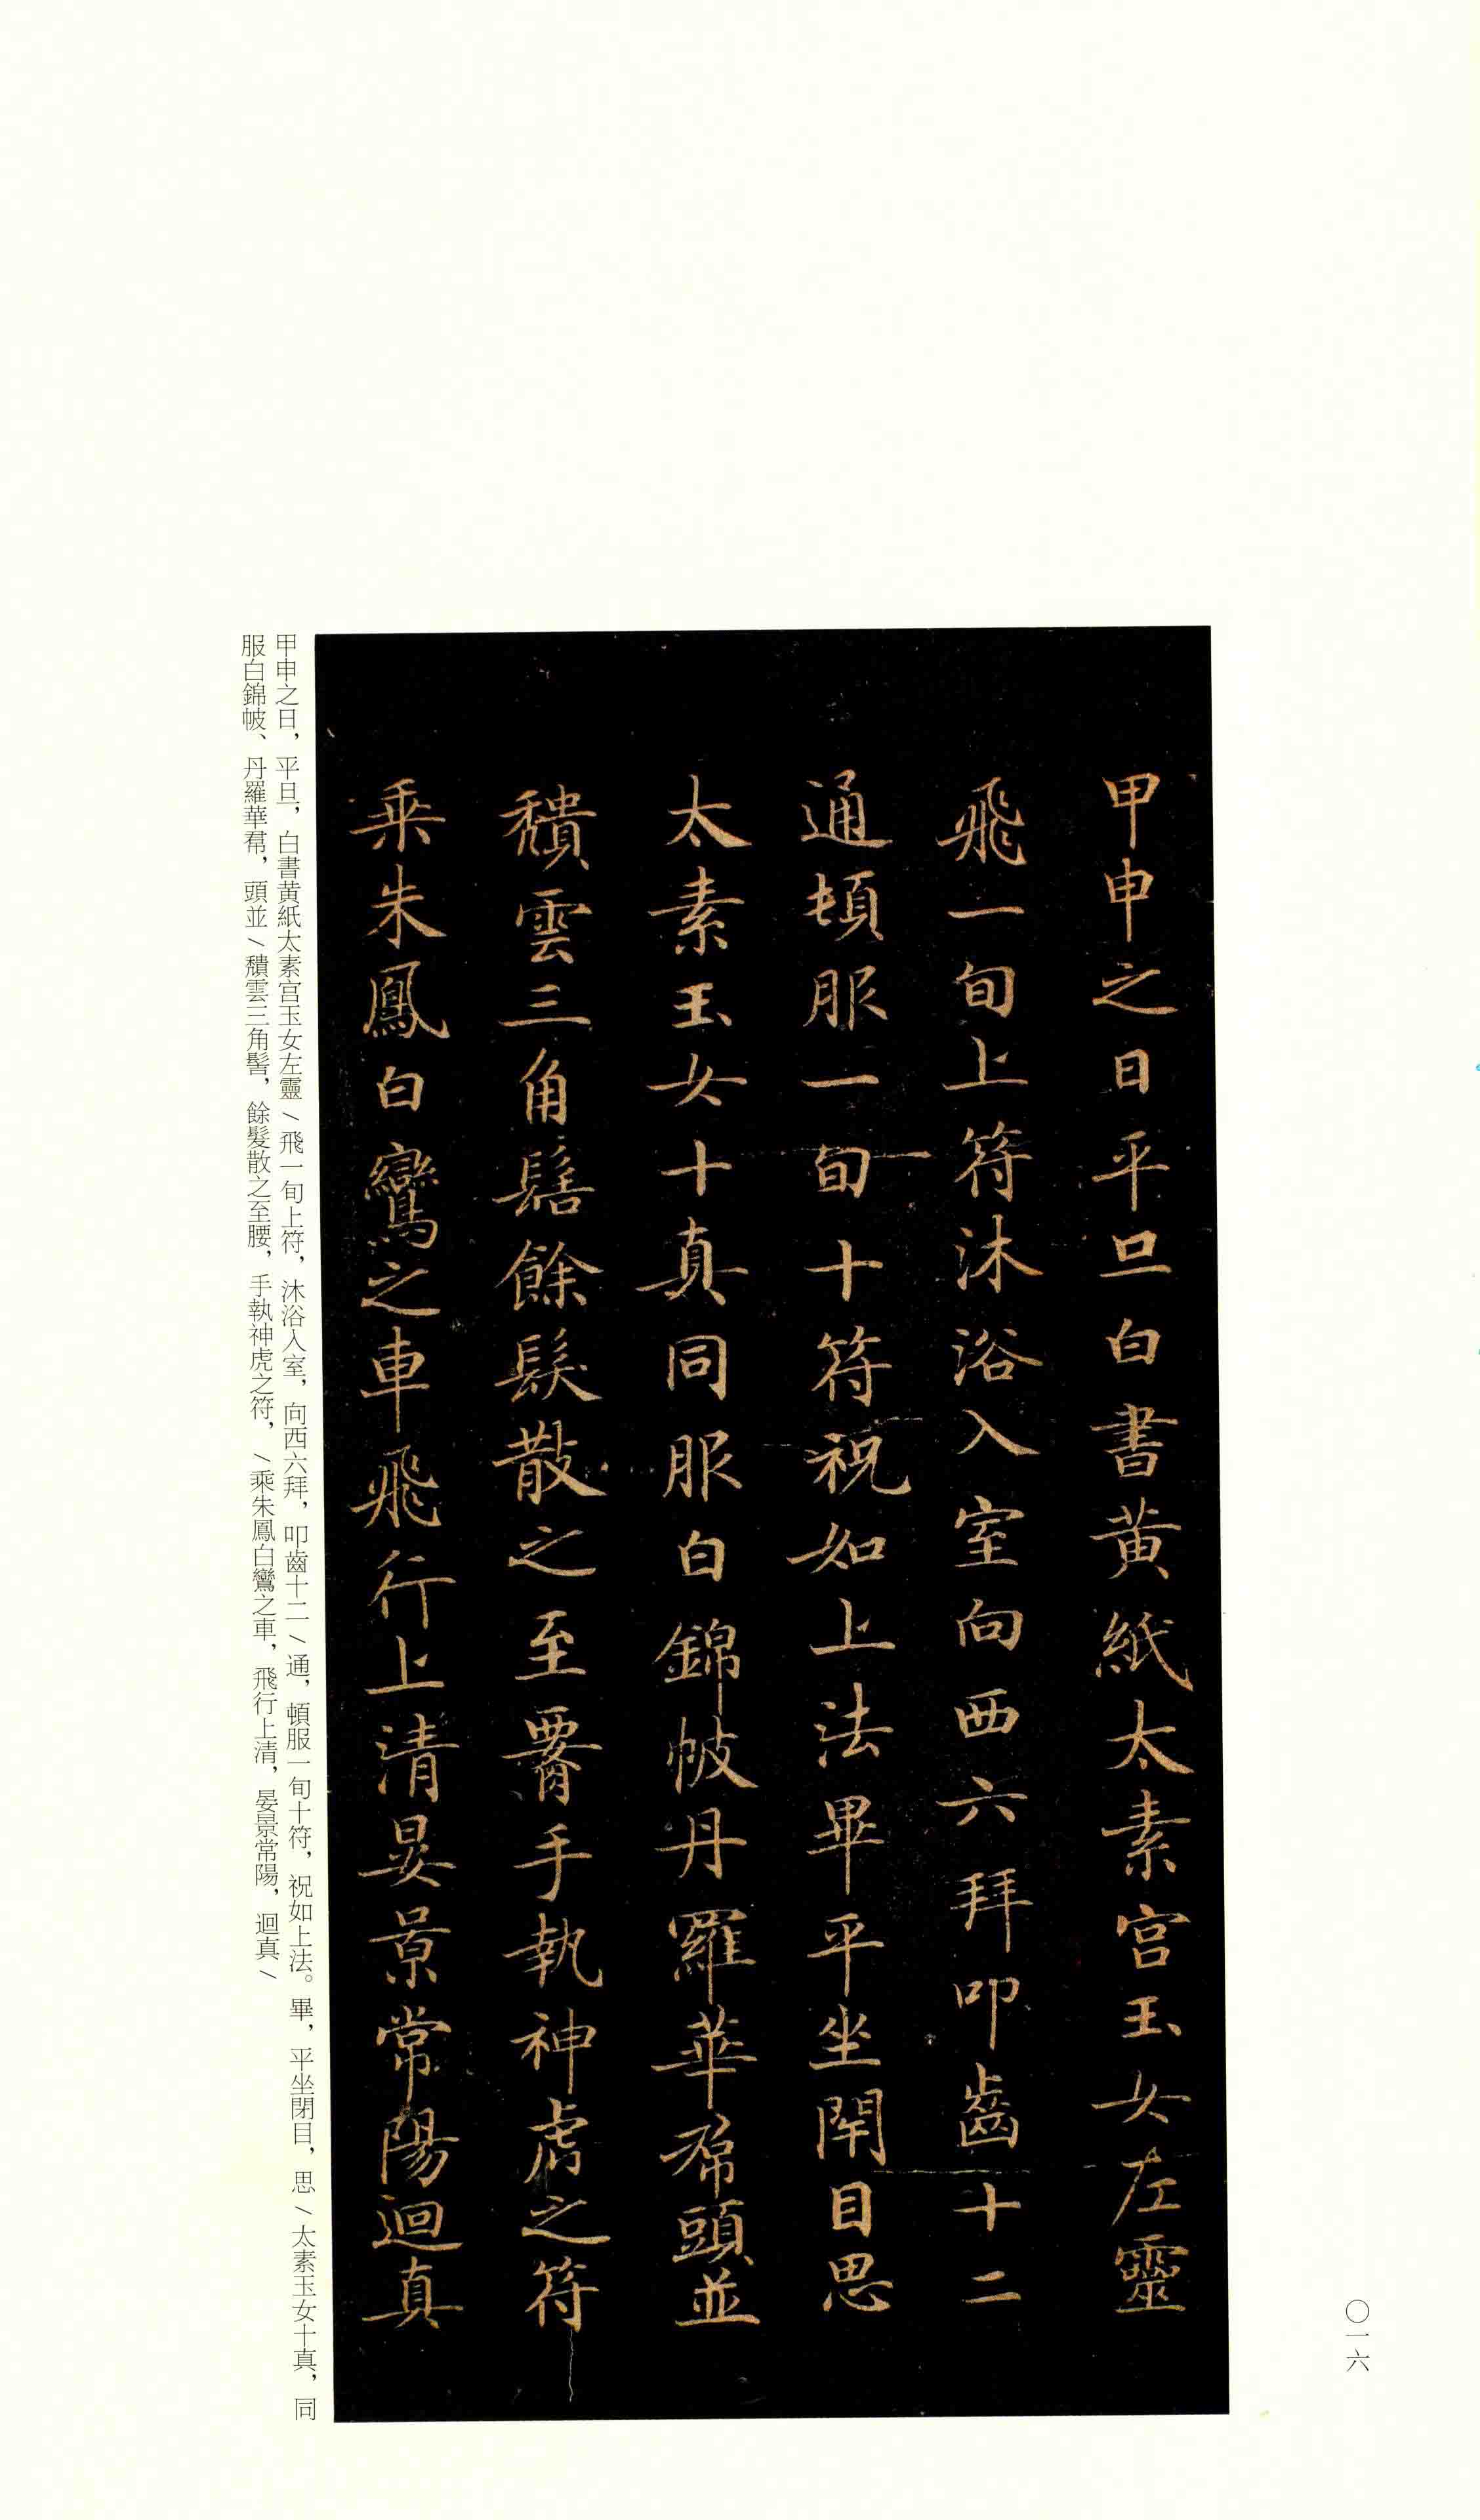 甲申之日平旦白書黄紙太素宮玉女左靈
飛一旬上符沐浴入室向西六拜叩齒十二
通頓服一旬十符祝如上法畢平坐閉目思
太素玉女十真同服白錦帔丹羅華帬頭並
穨雲三角髻餘髮散之至腰手執神虎之符
乘朱鳳白鸞之車飛行上清晏景常陽迴真
甲申之日，平旦，白書黄紙太素宮玉女左靈/飛一旬上符，沐浴入室，向西六拜，叩齒十二/通，頓服一旬十符，祝如上法。畢，平坐閉目，思/太素玉女十真，同
服白錦帔、丹羅華帬，頭並/穨雲三角髻，餘髮散之至腰，手執神虎之符，/乘朱鳳白鸞之車，飛行上清，晏景常陽，迴真/
〇一六